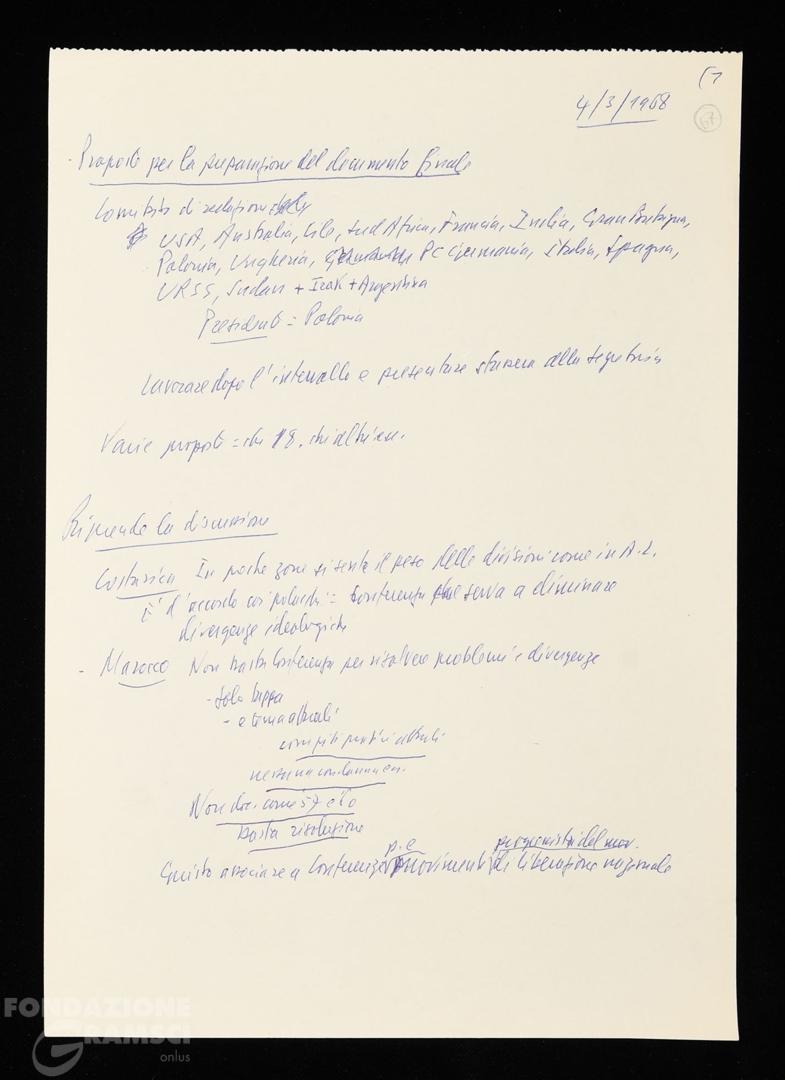 4/3/1968
67
Proposte per la preparazione del documento finale
Comitato di redazione
USA, Australia, Cile, Sud Africa, Francia, India, Gran Bretagna,
Polonia, Ungheria, PC Germania, Italia, Spagna,
URSS, Sudan + Irak + Argentina
Presidente = Polonia
Lavorare dopo l'intervallo e presentare stasera alla segreteria
Varie proposte = chi 18, chi altri ecc.
Riprende la discussione
Costarica In poche zone si sente il peso delle divisioni come in A.L.
E' d'accordo coi polacchi = Conferenza che serva a eliminare
divergenze ideologiche
- Marocco Non basta Conferenza per risolvere problemi e divergenze
- solo tappa
- e temi attuali
compiti pratici attuali
nessuna condanna ecc.
Non doc. come 57 e 60
basta risoluzione
p.e progressisti del mov.
Giusto associare a Conferenza movimenti di liberazione nazionale
FONDAZIONE
GRAMSCI
onlus